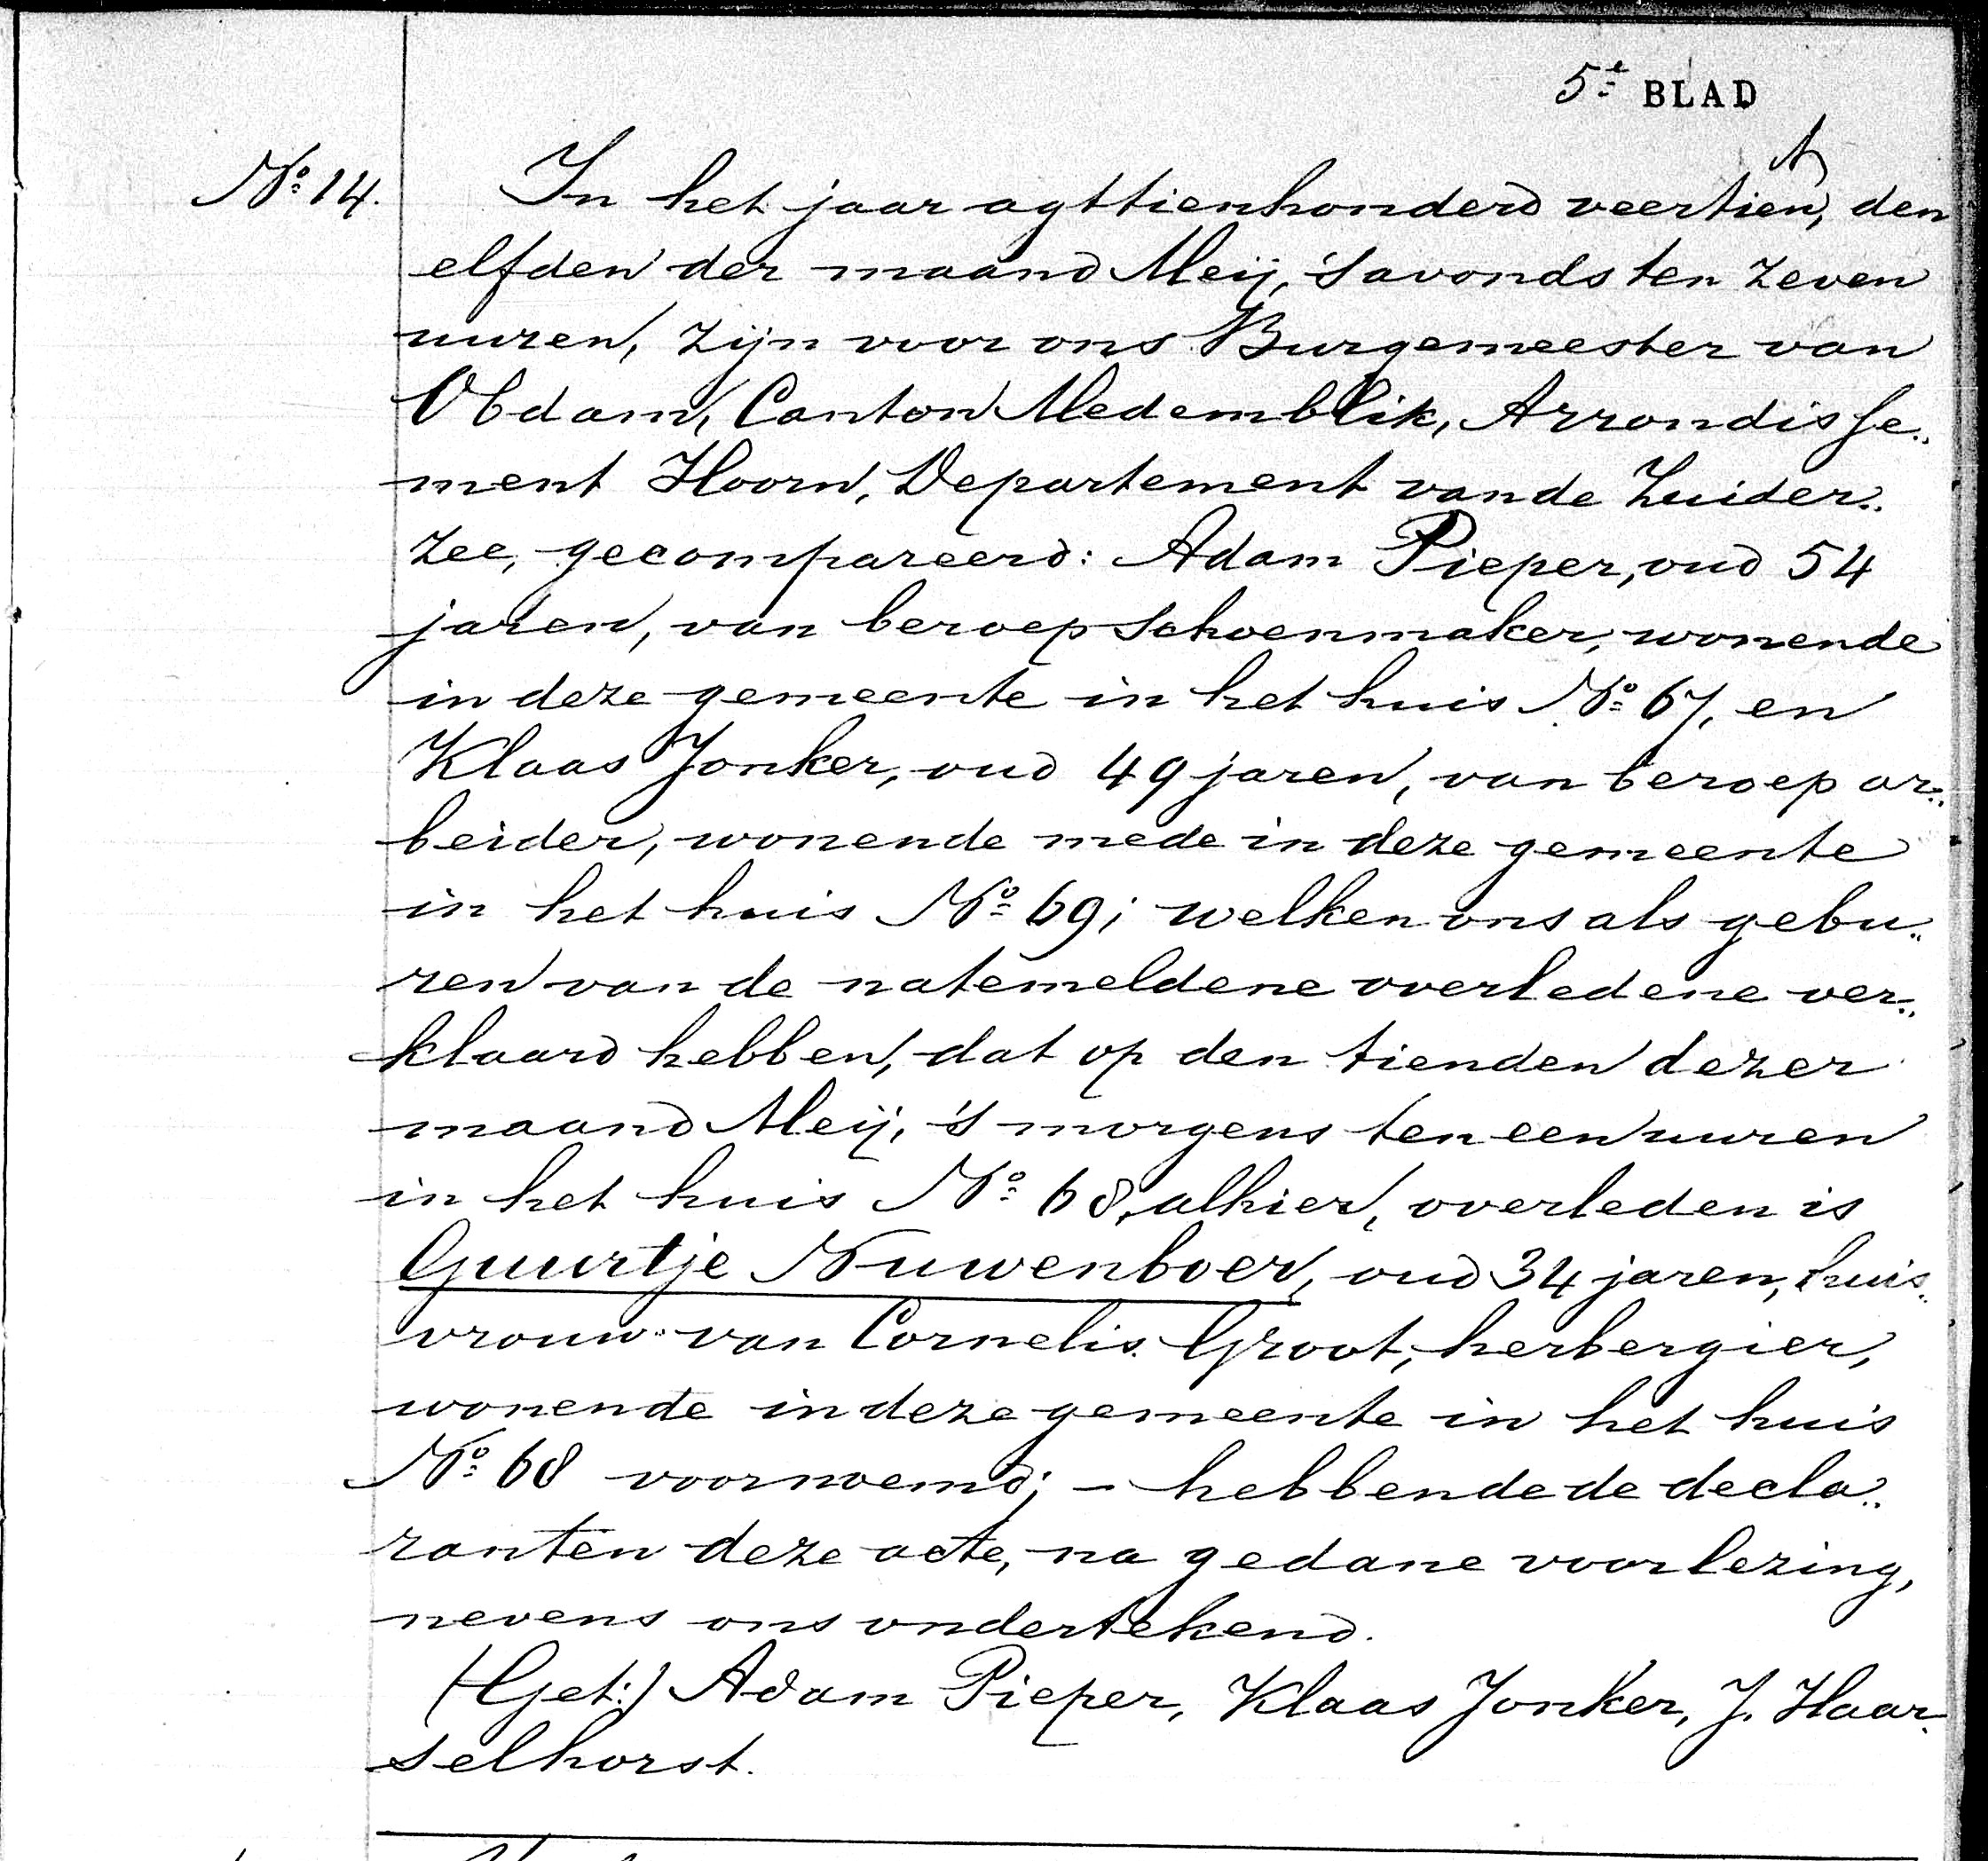 5e BLAD
No 14.
In het jaar agttienhonderd veertien, den
elfden der maand Meij, 's avonds ten zeven
uuren, zijn voor ons Burgemeester van
Obdam, Canton Medemblik, Arrondisse„
ment Hoorn, Departement van de Zuider„
zee, gecompareerd: Adam Pieper, oud 54
jaren, van beroep schoenmaker, wonende
in deze gemeente in het huis No 67, en
Klaas Jonker, oud 49 jaren, van beroep ar„
beider, wonende mede in deze gemeente
in het huis No 69; welken ons als gebu„
ren van de natemeldene overledene ver„
klaard hebben, dat op den tienden dezer
maand Meij, 's morgens ten een uuren
in het huis No 68, alhier, overleden is
Guurtje Nuwenboer, oud 34 jaren, huis„
vrouw van Cornelis Groot, herbergier,
wonende in deze gemeente in het huis
No 68 voornoemd; – hebbende de decla„
ranten deze acte, na gedane voorlezing,
nevens ons ondertekend.
(Get:) Adam Pieper, Klaas Jonker, J. Haar„
selhorst.